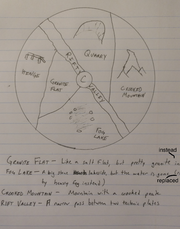 QUARRY
RIFT
VALLEY
C
GRANITE
FLAT
CROOKED
MOUNTAIN
FOG
LAKE
instead
GRANITE FLAT - Like a salt flat, but pretty granite in
FOG LAKE - A big lake, but the water is
by heavy fog instead)
replaced
CROOKED MOUNTAIN - Mountain with a peak
RIFT VALLEY - A narrow path between two tectonic plates